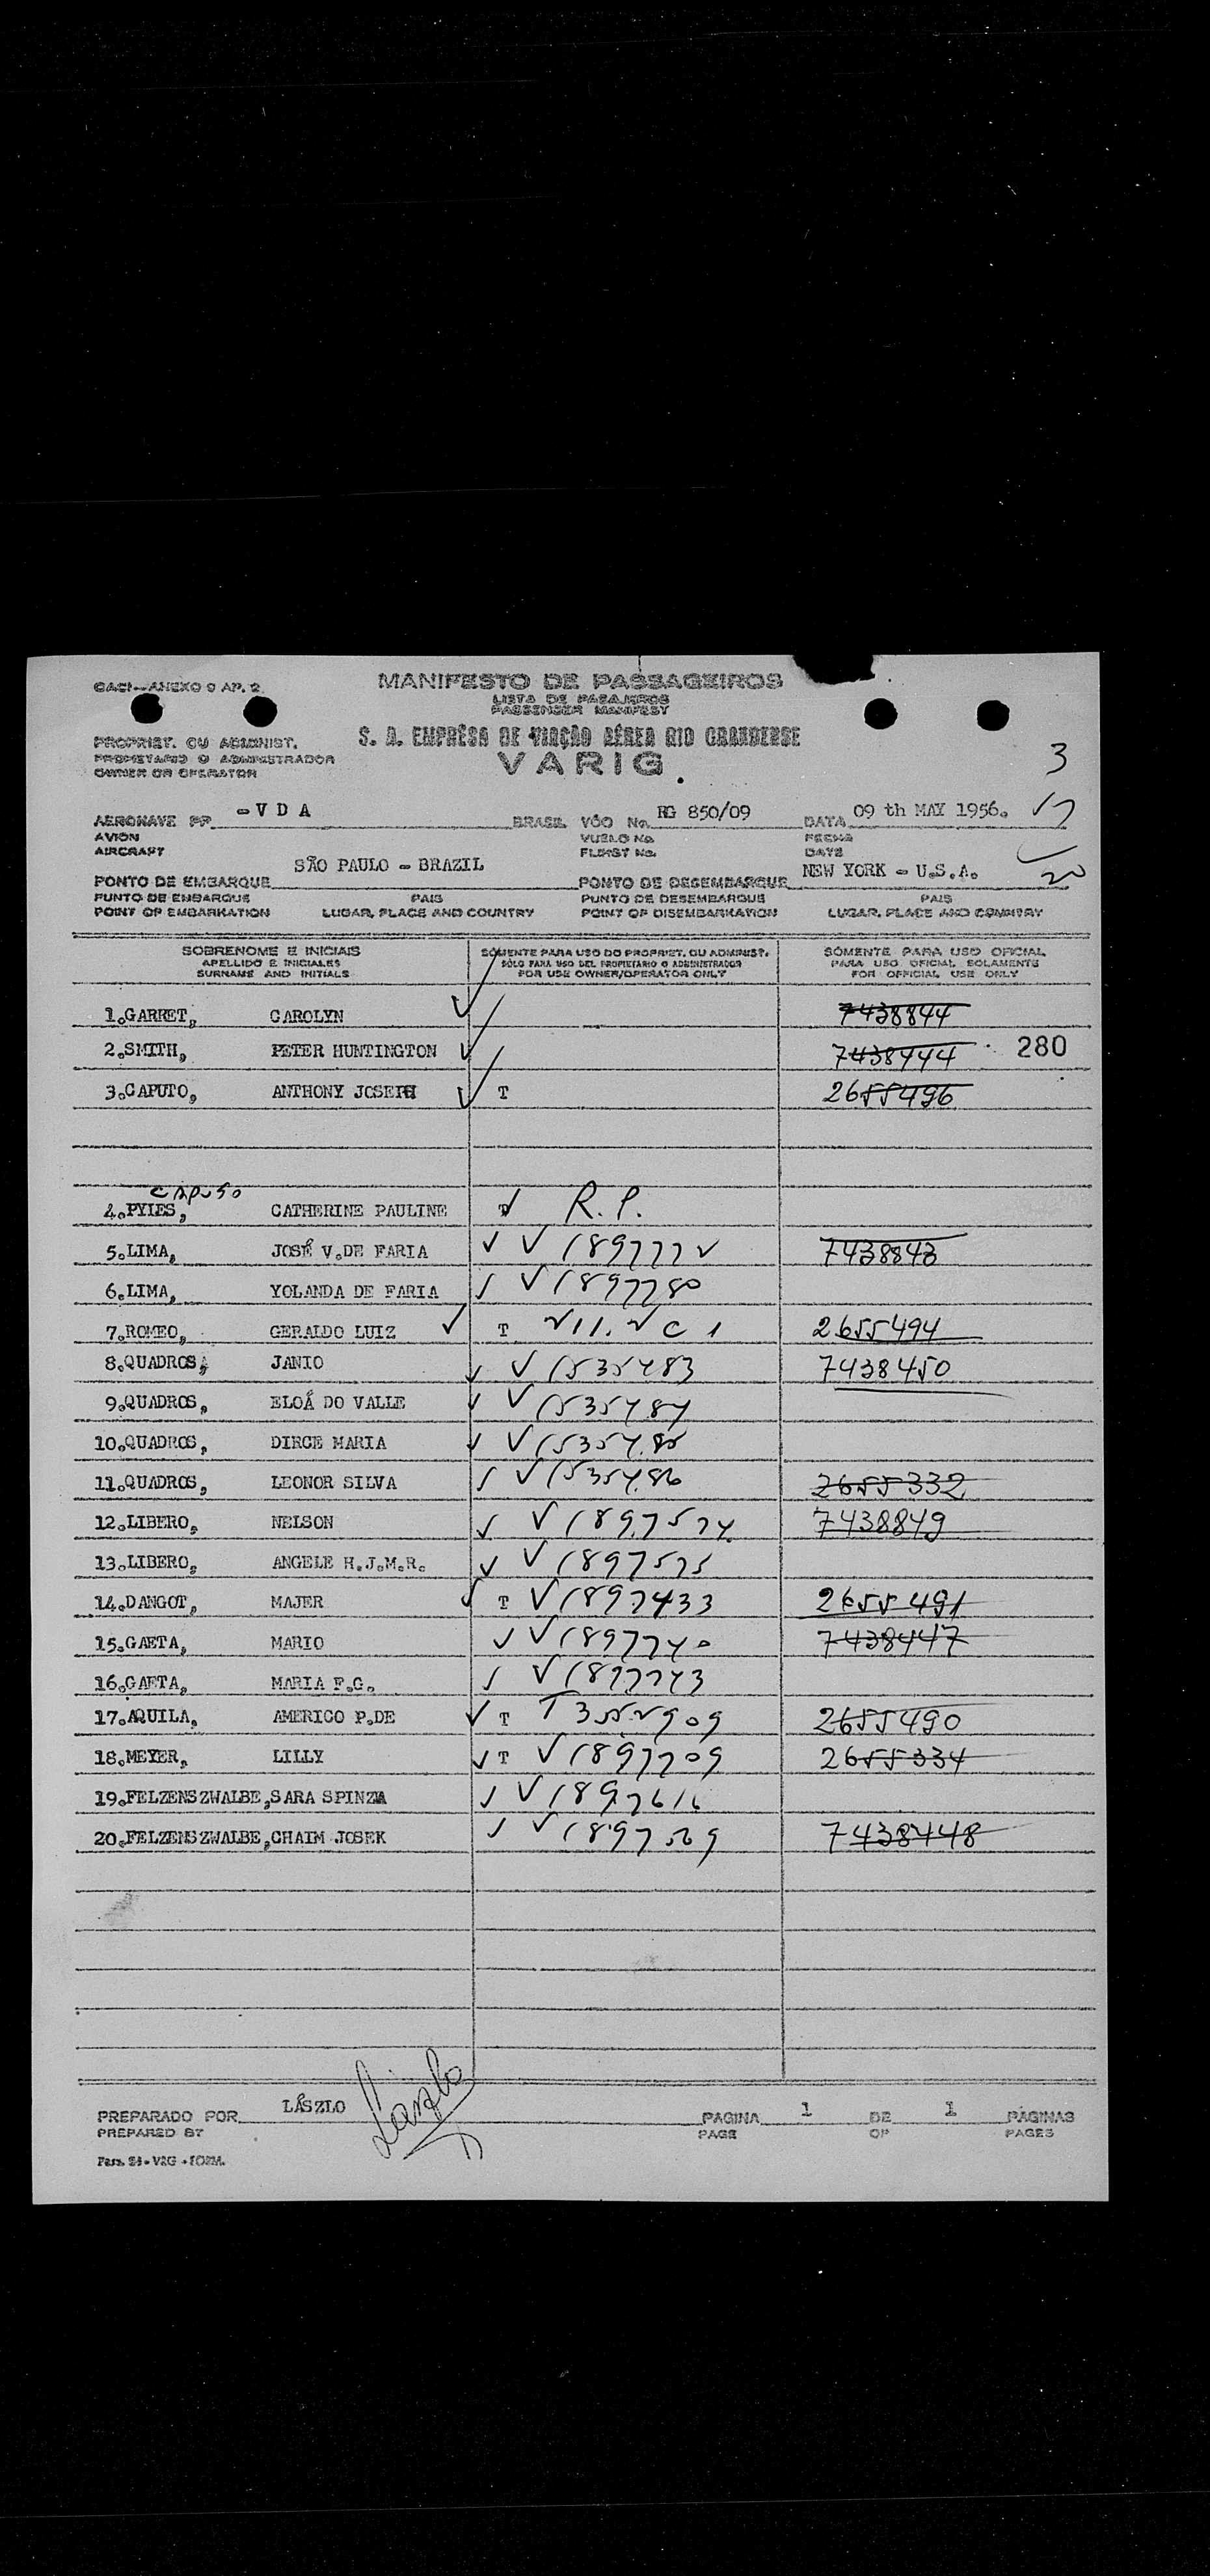 OACI—ANEXO 9 AP. 2
MANIFESTO DE PASSAGEIROS
LISTA DE PASAJEROS
PASSENGER MANIFEST
PROPRIET. OU ADMINIST.
PROPIETARIO O ADMINISTRADOR
OWNER OR OPERATOR
S. A. EMPRÊSA DE VIAÇÃO AÉREA RIO GRANDENSE
VARIG
3
17
20
AERONAVE PP -VDA BRASIL VÔO No. RG 850/09 DATA 09 th MAY 1956.
AVION VUELO No. FECHA
AIRCRAFT FLIGHT No. DATE
PONTO DE EMBARQUE SÃO PAULO - BRAZIL PONTO DE DESEMBARQUE NEW YORK - U.S.A.
PUNTO DE EMBARQUE PAIS PUNTO DE DESEMBARQUE PAIS
POINT OF EMBARKATION LUGAR, PLACE AND COUNTRY POINT OF DISEMBARKATION LUGAR, PLACE AND COUNTRY
SOBRENOME E INICIAIS SÓMENTE PARA USO DO PROPRIET. OU ADMINIST. SÓMENTE PARA USO OFICIAL
APELLIDO E INICIALES SOLO PARA USO DEL PROPIETARIO O ADMINISTRADOR PARA USO OFICIAL SOLAMENTE
SURNAME AND INITIALS FOR USE OWNER/OPERATOR ONLY FOR OFFICIAL USE ONLY
1.GARRET, CAROLYN 7438844
2.SMITH, PETER HUNTINGTON 7438444 280
3.CAPUTO, ANTHONY JOSEPH T 2655496
4.PYLES, CATHERINE PAULINE T R.P.
5.LIMA, JOSÉ V.DE FARIA V 189777 7438843
6.LIMA, YOLANDA DE FARIA V 1897780
7.ROMEO, GERALDO LUIZ T 2655494
8.QUADROS, JANIO V 1535483 7438450
9.QUADROS, ELOÁ DO VALLE V 1535484
10.QUADROS, DIRCE MARIA V 1535485
11.QUADROS, LEONOR SILVA V 1535486 2655332
12.LIBERO, NELSON V 1897574 7438849
13.LIBERO, ANGELE H.J.M.R. V 1897575
14.DANGOT, MAJER T V 1897433 2655491
15.GAETA, MARIO V 1897740 7438447
16.GAETA, MARIA F.G. V 1897743
17.AQUILA, AMERICO P.DE T 2655490
18.MEYER, LILLY T V 1897709 2655334
19.FELZENSZWALBE,SARA SPINZA V 1897616
20.FELZENSZWALBE,CHAIM JOSEK V 1897569 7438448
PREPARADO POR LÁSZLO László PAGINA 1 DE 1 PÁGINAS
PREPARED BY PAGE OF PAGES